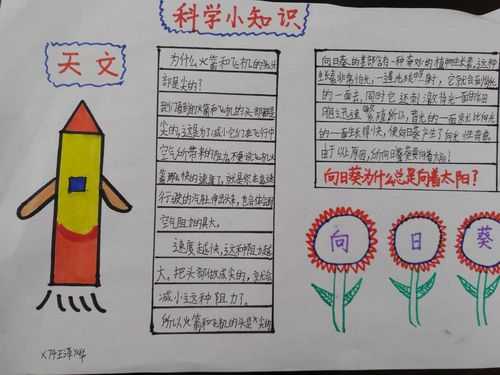 科学小知识
天文
为什么火箭和飞机的头
都是尖的?
我们看到的火箭和飞机的头部都是
尖的,这是为了减小它们在飞行中
空气所带来的阻力,不要说飞机火
箭那么快的速度了,就是你在高速
行驶的汽车伸出头来,也会体会到
空气阻力的具大。
速度越快,这种阻力越
大,把头部做成尖的,就会
减小这种阻力了。
所以火箭和飞机的头是尖的
向日葵的茎部含有一种奇妙的植物生长素,这种
生长素非常怕光,一遇光线照射,它就会到背光
的一面去,同时它还刺激背光一面的细胞
迅速繁殖,所以,背光的一面就比向光
的一面生长得快,使向日葵产生了向光性弯曲
由于以上原因,所向日葵要向着太阳!
向日葵为什么总是向着太阳?
向
日
葵